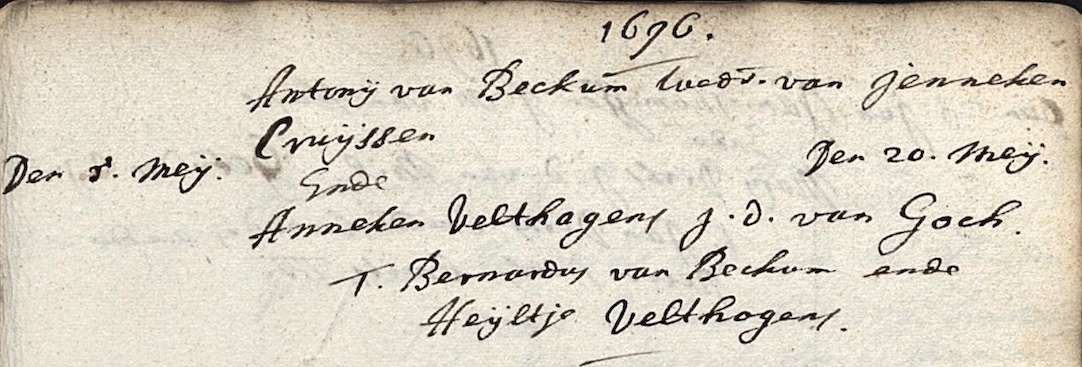 1696.
Antonij van Beckum wedr. van Jenneken
Cruijssen
Den 5. Meij.
Ende
Den 20. Meij.
Anneken Velthagens j. d. van Goch.
T. Bernardus van Beckum ende
Heijltje Velthogens.